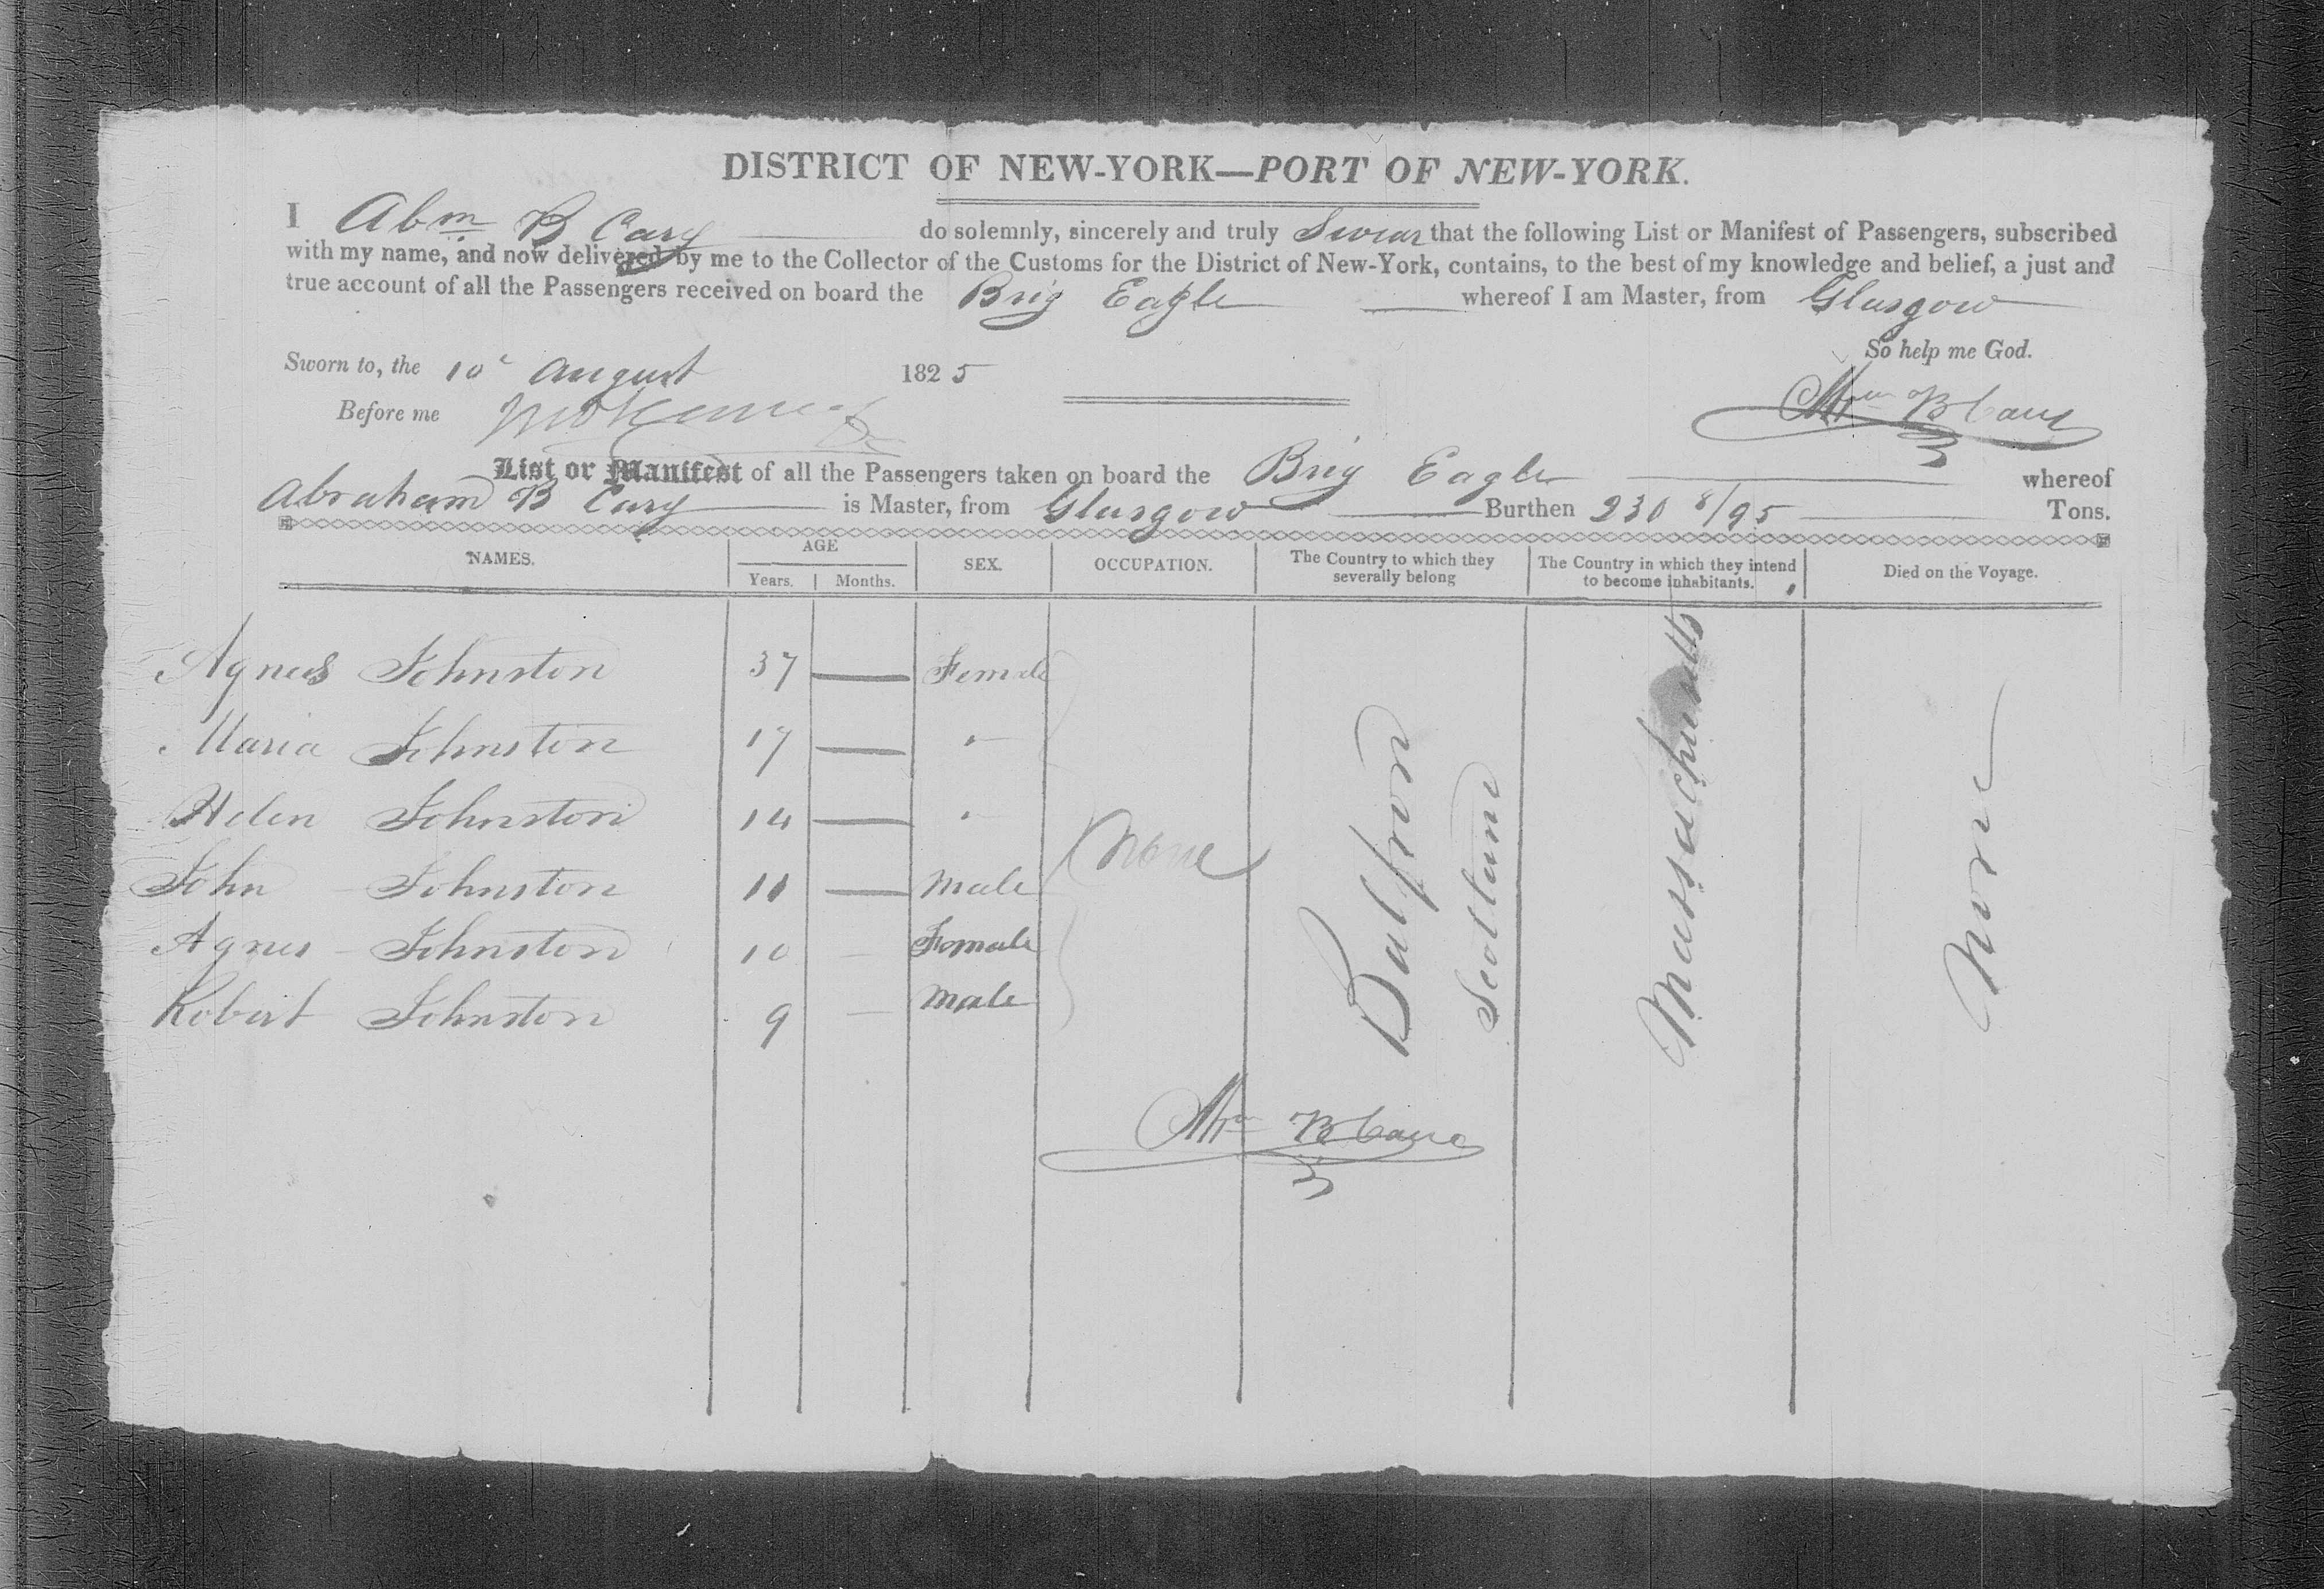 DISTRICT OF NEW-YORK—PORT OF NEW-YORK.
I Abm. B Cary do solemnly, sincerely and truly Swear that the following List or Manifest of Passengers, subscribed
with my name, and now delivered by me to the Collector of the Customs for the District of New-York, contains, to the best of my knowledge and belief, a just and
true account of all the Passengers received on board the Brig Eagle whereof I am Master, from Glasgow
So help me God.
Sworn to, the 10 August 1825
Before me
Abm B Cary
List or Manifest of all the Passengers taken on board the Brig Eagle whereof
Abraham B Cary is Master, from Glasgow Burthen 230 8/95 Tons.
NAMES. AGE SEX. OCCUPATION. The Country to which they severally belong The Country in which they intend to become inhabitants. Died on the Voyage.
Years. Months.
Agnes Johnston 37 — Female
Maria Johnston 17 — "
Helen Johnston 14 — "
John Johnston 11 — Male
Agnes Johnston 10 — Female
Robert Johnston 9 — Male
None
Balfron
Scotland
Massachusetts
None
Abm B Cary